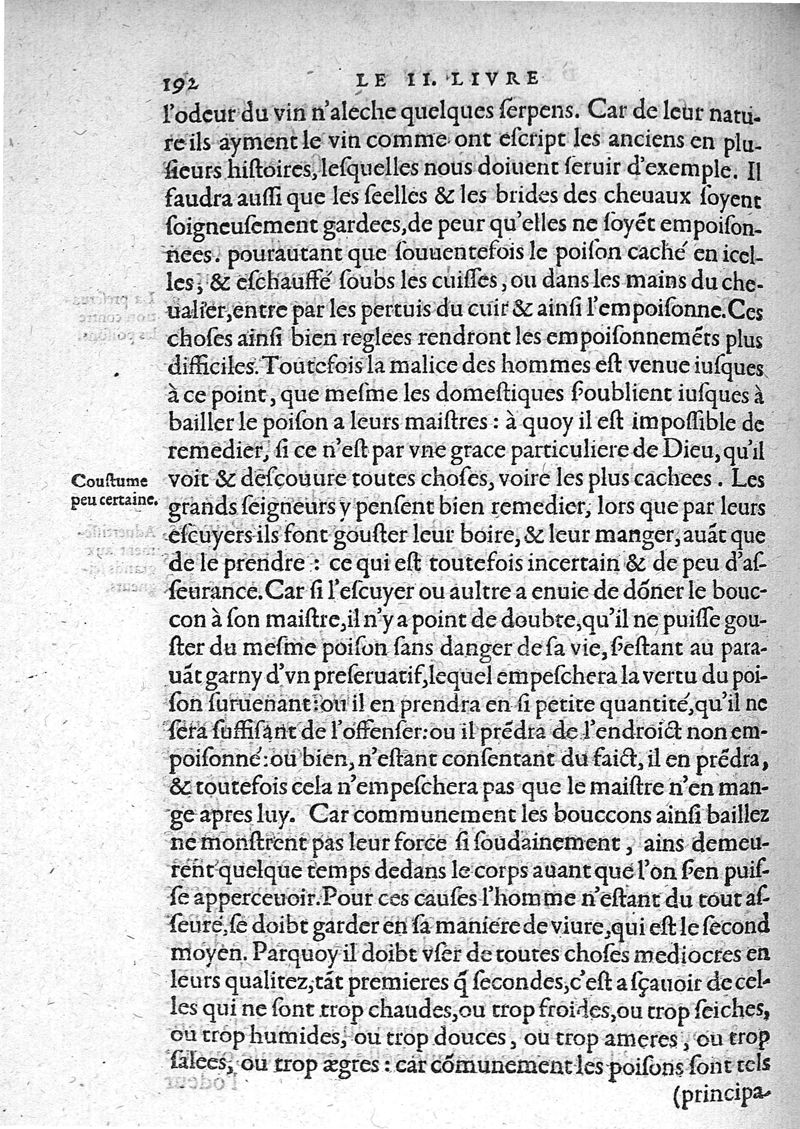 192 LE II. LIVRE
l'odeur du vin n'aleche quelques ſerpens. Car de leur natu-
re ils ayment le vin comme ont eſcript les anciens en plu-
ſieurs hiſtoires, leſquelles nous doiuent ſeruir d'exemple. Il
faudra auſſi que les ſeelles & les brides des cheuaux ſoyent
ſoigneuſement gardees, de peur qu'elles ne ſoyẽt empoiſon-
nees. pourautant que ſouuentefois le poiſon caché en icel-
les, & eſchauffé ſoubs les cuiſſes, ou dans les mains du che-
ualier, entre par les pertuis du cuir & ainſi l'empoiſonne. Ces
choſes ainſi bien reglees rendront les empoiſonnemẽts plus
difficiles. Toutefois la malice des hommes eſt venue iuſques
à ce point, que meſme les domeſtiques ſ'oublient iuſques à
bailler le poiſon a leurs maiſtres : à quoy il eſt impoſſible de
remedier, ſi ce n'eſt par vne grace particuliere de Dieu, qu'il
Couſtume
peu certaine.
voit & deſcouure toutes choſes, voire les plus cachees. Les
grands ſeigneurs y penſent bien remedier, lors que par leurs
eſcuyers ils font gouſter leur boire, & leur manger, auãt que
de le prendre : ce qui eſt toutefois incertain & de peu d'aſ-
ſeurance. Car ſi l'eſcuyer ou aultre a enuie de dõner le bouc-
con à ſon maiſtre, il n'y a point de doubte, qu'il ne puiſſe gou-
ſter du meſme poiſon ſans danger de ſa vie, ſ'eſtant au para-
uãt garny d'vn preſeruatif, lequel empeſchera la vertu du poi-
ſon ſuruenant: ou il en prendra en ſi petite quantité, qu'il ne
ſera ſuffiſant de l'offenſer: ou il prẽdra de l'endroict non em-
poiſonné: ou bien, n'eſtant conſentant du faict, il en prẽdra,
& toutefois cela n'empeſchera pas que le maiſtre n'en man-
ge apres luy. Car communement les bouccons ainſi baillez
ne monſtrent pas leur force ſi ſoudainement, ains demeu-
rent quelque temps dedans le corps auant que l'on ſ'en puiſ-
ſe apperceuoir. Pour ces cauſes l'homme n'eſtant du tout aſ-
ſeuré, ſe doibt garder en ſa maniere de viure, qui eſt le ſecond
moyen. Parquoy il doibt vſer de toutes choſes mediocres en
leurs qualitez, tãt premieres q̃ ſecondes, c'eſt a ſçauoir de cel-
les qui ne ſont trop chaudes, ou trop froides, ou trop ſeiches,
ou trop humides, ou trop douces, ou trop ameres, ou trop
ſalees, ou trop ægres : car cõmunement les poiſons ſont tels
(principa-